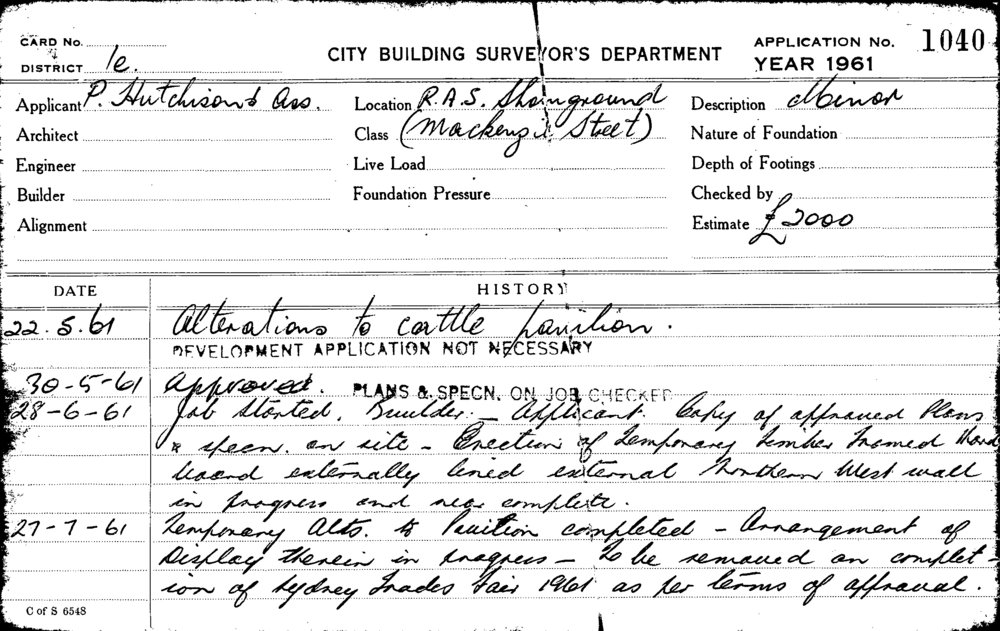 CARD No.
DISTRICT 1e.
CITY BUILDING SURVEYOR'S DEPARTMENT
APPLICATION No. 1040
YEAR 1961
Applicant P. Hutchison & Ass.
Location R.A.S. Showground
Description Minor
Architect
Class (Mackenzie Street)
Nature of Foundation
Engineer
Live Load
Depth of Footings
Builder
Foundation Pressure
Checked by
Alignment
Estimate £2000
DATE
HISTORY
22.5.61 Alterations to cattle pavilion.
DEVELOPMENT APPLICATION NOT NECESSARY
30-5-61 Approved. PLANS & SPECN. ON JOB CHECKED
28-6-61 Job started. Builder - Applicant. Copy of approved Plans
& specn. on site - Erection of temporary timber framed Hard
board externally lined external Northern West wall
in progress and near complete.
27-7-61 Temporary Alts. to Pavilion completed - Arrangement of
Display therein in progress - To be removed on complet-
ion of Sydney Trades Fair 1961 as per terms of approval.
C of S 6548